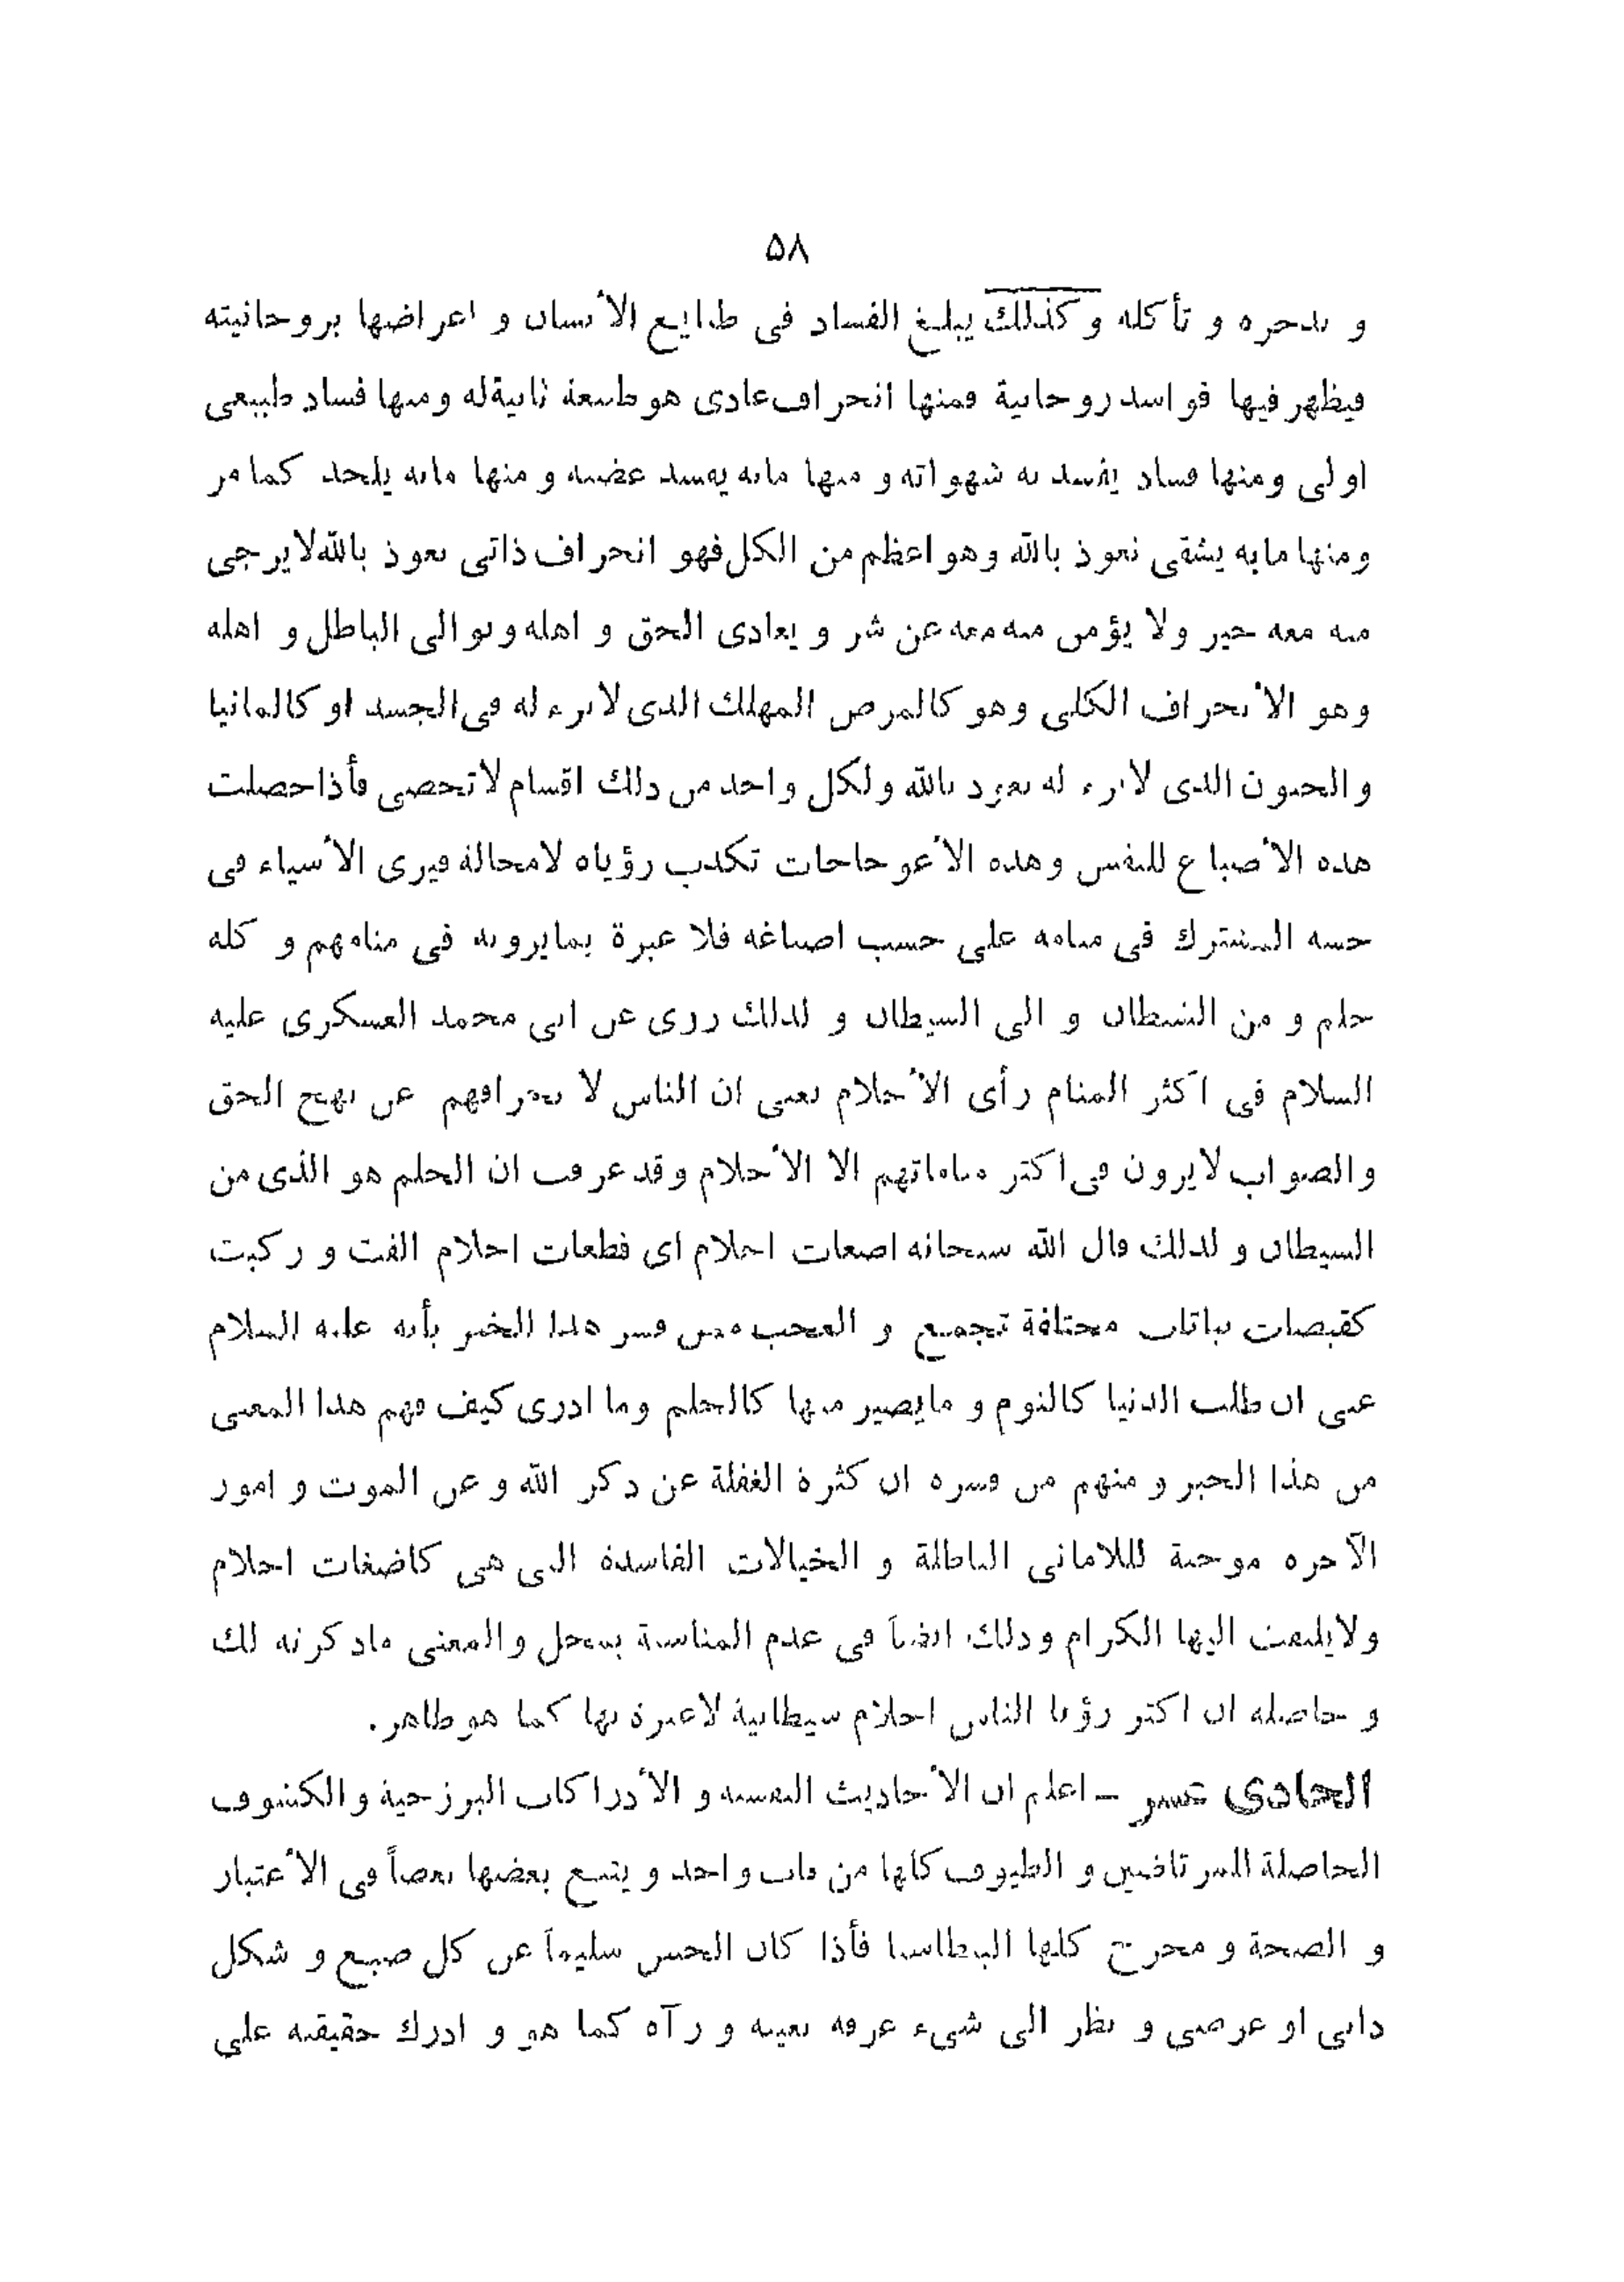 ۵۸
و تدخره و تأكله و كذلك يبلغ الفساد فى طبايع الأنسان و اعراضها بروحانيته
فيظهر فيها فواسد روحانية فمنها انحراف عادى هو طبيعة ثانية له ومنها فساد طبيعى
اولى ومنها فساد يفسد به شهواته و منها مابه يفسد غضبه و منها مابه يلحد كمامر
ومنها مابه يشقى نعوذ بالله وهو اعظم من الكل فهو انحراف ذاتى نعوذ بالله لايرجى
منه معه خير ولا يؤمن منه معه عن شر و يعادى الحق و اهله و يوالى الباطل و اهله
وهو الأنحراف الكلى وهو كالمرض المهلك الذى لابرء له فى الجسد او كالمانيا
والجنون الذى لابرء له نعوذ بالله ولكل واحد من ذلك اقسام لاتحصى فأذا حصلت
هذه الأصباغ للنفس وهذه الأعوجاجات تكذب رؤياه لامحالة فيرى الأشياء فى
حسه المشترك فى منامه على حسب اصباغه فلا عبرة بمايرونه فى منامهم و كله
حلم و من الشيطان و الى الشيطان و لذلك روى عن ابى محمد العسكرى عليه
السلام فى اكثر المنام رأى الأحلام يعنى ان الناس لانحرافهم عن نهج الحق
والصواب لايرون فى اكثر مناماتهم الا الأحلام وقد عرفت ان الحلم هو الذى من
الشيطان و لذلك قال الله سبحانه اضغاث احلام اى قطعات احلام الفت و ركبت
كقبضات نباتات مختلفة تجمع و العجب ممن فسر هذا الخبر بأنه عليه السلام
عنى ان طلب الدنيا كالنوم و مايصير منها كالحلم وما ادرى كيف فهم هذا المعنى
من هذا الخبر و منهم من فسره ان كثرة الغفلة عن ذكر الله و عن الموت و امور
الآخره موجبة للامانى الباطلة و الخيالات الفاسدة التى هى كاضغاث احلام
ولايلتفت اليها الكرام وذلك ايضاً فى عدم المناسبة بمحل والمعنى ماذكرته لك
و حاصله ان اكثر رؤيا الناس احلام شيطانية لاعبرة بها كما هو ظاهر.
الحادى عشر ــ اعلم ان الأحاديث النفسيه و الأدراكات البرزخية و الكشوف
الحاصلة للمرتاضين و الطيوف كلها من باب واحد و يتبع بعضها بعضاً فى الأعتبار
و الصحة و مخرج كلها البنطاسيا فأذا كان الحس سليماً عن كل صبغ و شكل
ذاتى او عرضى و نظر الى شىء عرفه بعينه و رآه كما هو و ادرك حقيقته على